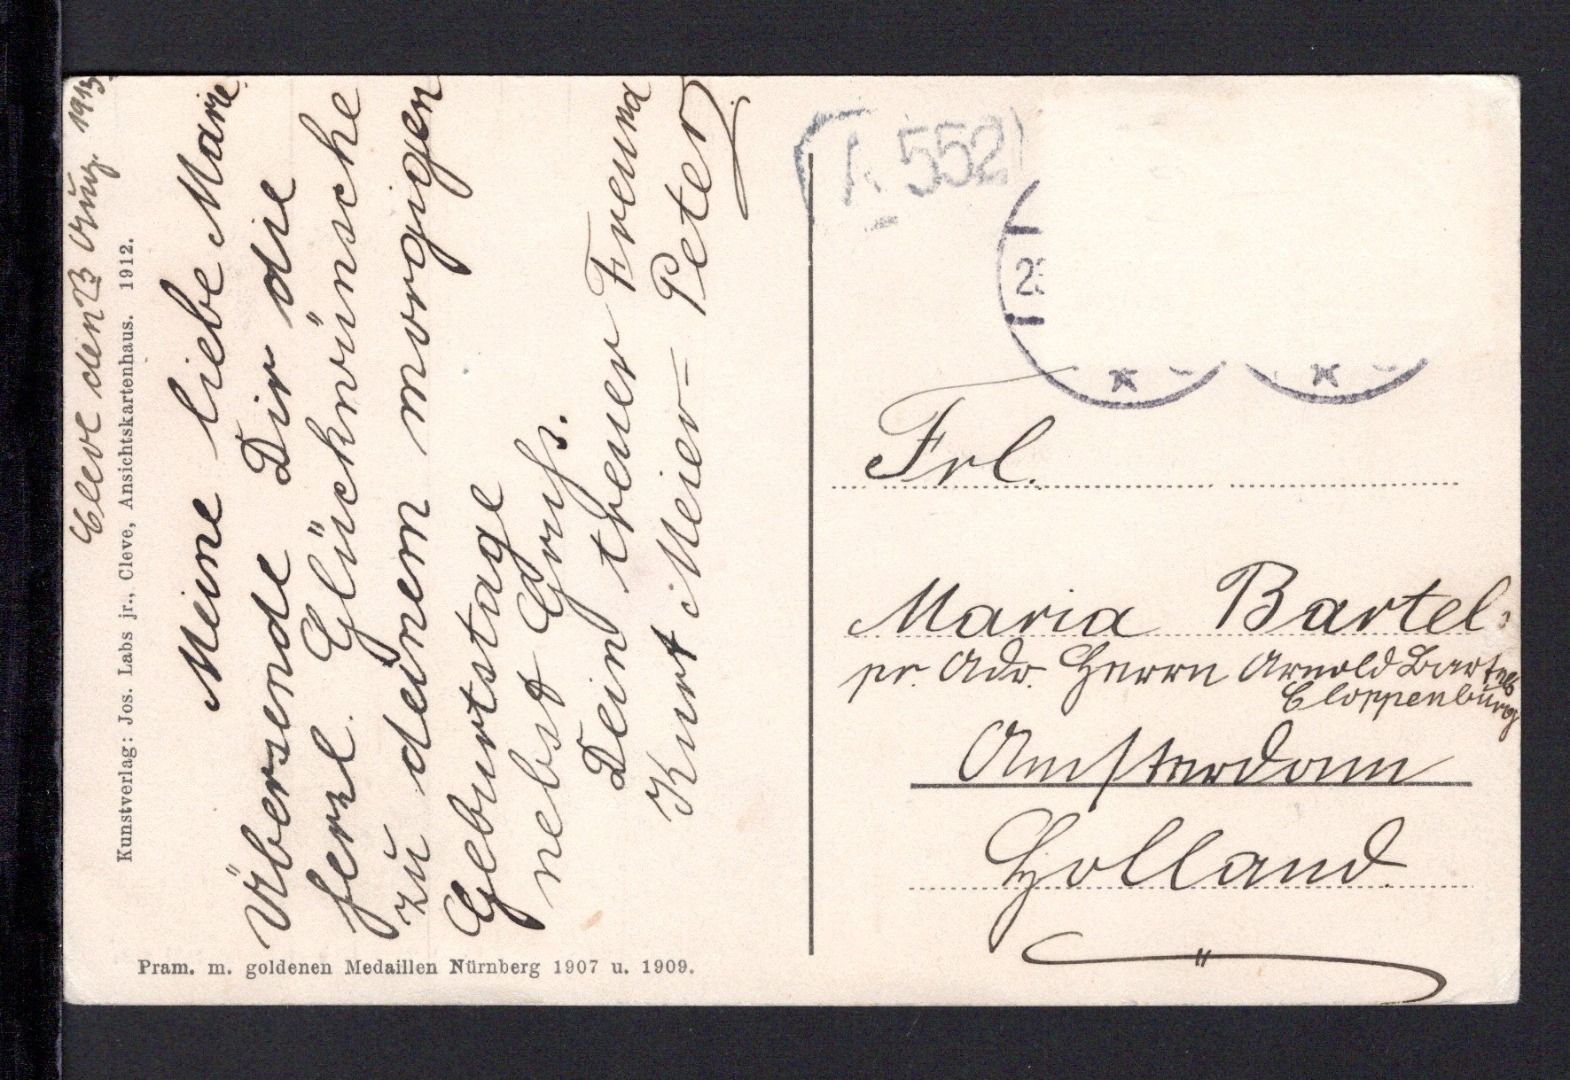 Cleve den 23 Aug. 1913.
Kunstverlag: Jos. Labs jr., Cleve, Ansichtskartenhaus. 1912.
Meine liebe Marie
Übersende Dir die
Glückwünsche
zu deinem morgigen
Geburtstage
nebst Gruß.
Dein treuer Freund
Kurt Meier-Peter
Pram. m. goldenen Medaillen Nürnberg 1907 u. 1909.
552
Frl.
Maria Bartel
pr. Adr. Herrn Arnold Bartels
Cloppenburg
Amsterdam
Holland